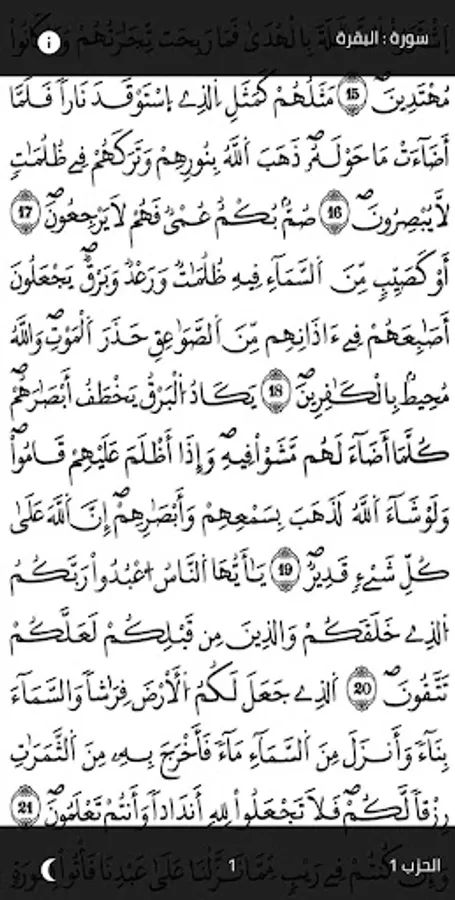 سورة : البقرة
i
بِالْهُدَىٰ فَمَا رَبِحَت تِّجَٰرَتُهُمْ
مُهْتَدِينَۖ 15 مَثَلُهُمْ كَمَثَلِ اِ۬لذِے اِ۪سْتَوْقَدَ نَاراٗ فَلَمَّا
أَضَآءَتْ مَا حَوْلَهُۥۖ ذَهَبَ اَ۬للَّهُ بِنُورِهِمْ وَتَرَكَهُمْ فِے ظُلُمَٰتٖ
لَّا يُبْصِرُونَۖ 16 صُمُّۢ بُكْمٌ عُمْيٞ فَهُمْ لَا يَرْجِعُونَۖ 17
أَوْ كَصَيِّبٖ مِّنَ اَ۬لسَّمَآءِ فِيهِ ظُلُمَٰتٞ وَرَعْدٞ وَبَرْقٞۖ يَجْعَلُونَ
أَصَٰبِعَهُمْ فِےٓ ءَاذَانِهِم مِّنَ اَ۬لصَّوَٰعِقِ حَذَرَ اَ۬لْمَوْتِۖ وَاللَّهُ
مُحِيطُۢ بِالْكَٰفِرِينَۖ 18 يَكَادُ اُ۬لْبَرْقُ يَخْطَفُ أَبْصَٰرَهُمْۖ
كُلَّمَآ أَضَآءَ لَهُم مَّشَوْاْ فِيهِۖ وَإِذَآ أَظْلَمَ عَلَيْهِمْ قَامُواْۖ
وَلَوْ شَآءَ اَ۬للَّهُ لَذَهَبَ بِسَمْعِهِمْ وَأَبْصَٰرِهِمْۖ إِنَّ اَ۬للَّهَ عَلَىٰ
كُلِّ شَےْءٖ قَدِيرٞۖ 19 يَٰٓأَيُّهَا اَ۬لنَّاسُ اُ۟عْبُدُواْ رَبَّكُمُ
اُ۬لذِے خَلَقَكُمْ وَالذِينَ مِن قَبْلِكُمْ لَعَلَّكُمْ
تَتَّقُونَۖ 20 اَ۬لذِے جَعَلَ لَكُمُ اُ۬لْأَرْضَ فِرَٰشاٗ وَالسَّمَآءَ
بِنَآءٗ وَأَنزَلَ مِنَ اَ۬لسَّمَآءِ مَآءٗ فَأَخْرَجَ بِهِۦ مِنَ اَ۬لثَّمَرَٰتِ
رِزْقاٗ لَّكُمْۖ فَلَا تَجْعَلُواْ لِلهِ أَندَاداٗ وَأَنتُمْ تَعْلَمُونَۖ 21
كُنتُمْ فِے رَيْبٖ مِّمَّا نَزَّلْنَا عَلَىٰ عَبْدِنَا
الحزب 1
1